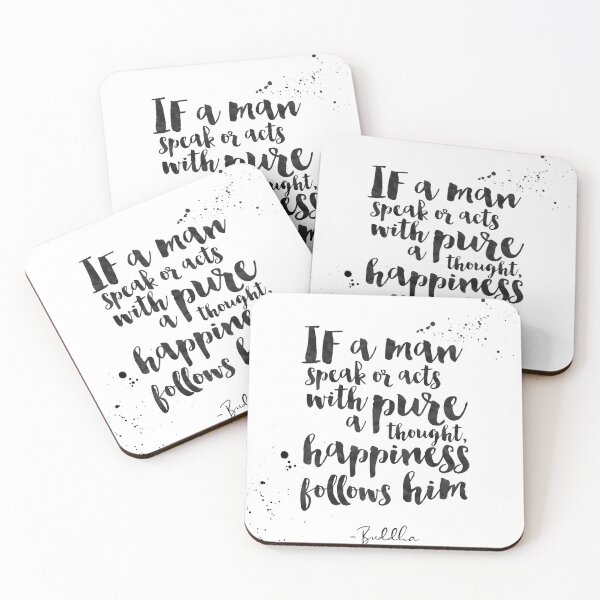 IF a man
speak or acts
with pure
IF a man
speak or acts
with pure
a thought,
happiness
IF a man
speak or acts
with pure
a thought,
happine
follows
IF a man
speak or acts
with pure
a thought,
happiness
follows him
~Buddha